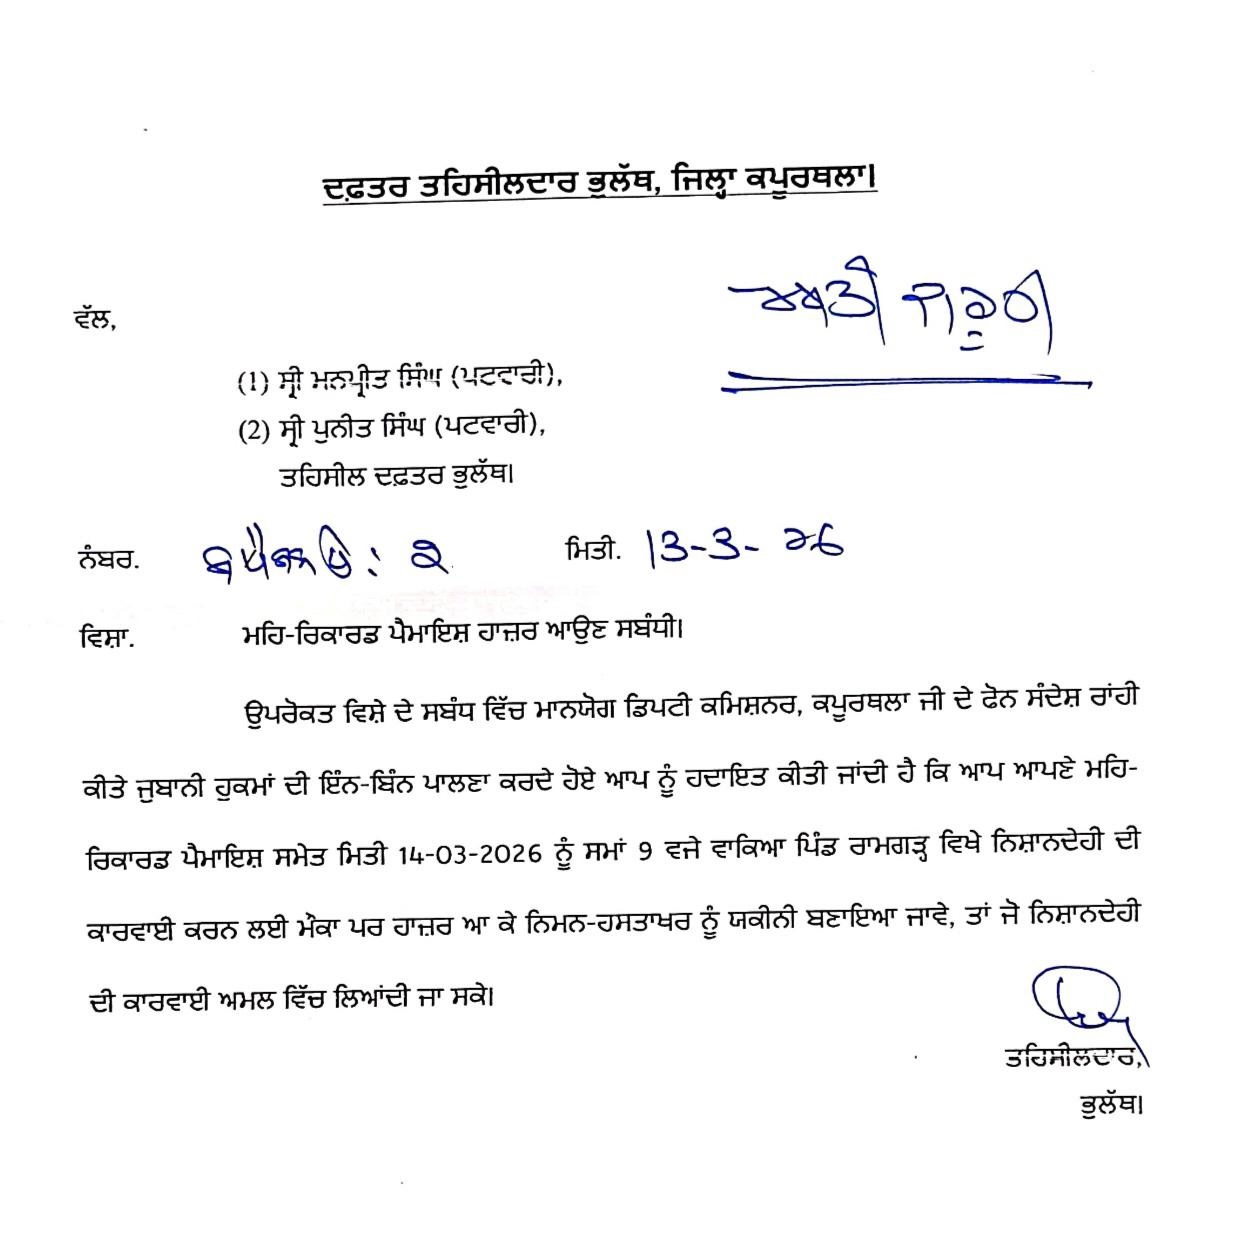 ਦਫ਼ਤਰ ਤਹਿਸੀਲਦਾਰ ਭੁਲੱਥ, ਜਿਲ੍ਹਾ ਕਪੂਰਥਲਾ।
ਅਤੀ ਜ਼ਰੂਰੀ
ਵੱਲ,
(1) ਸ੍ਰੀ ਮਨਪ੍ਰੀਤ ਸਿੰਘ (ਪਟਵਾਰੀ),
(2) ਸ੍ਰੀ ਪੁਨੀਤ ਸਿੰਘ (ਪਟਵਾਰੀ),
ਤਹਿਸੀਲ ਦਫ਼ਤਰ ਭੁਲੱਥ।
ਨੰਬਰ. ਮਿਤੀ. 13-3-26
ਵਿਸ਼ਾ. ਮਹਿ-ਰਿਕਾਰਡ ਪੈਮਾਇਸ਼ ਹਾਜ਼ਰ ਆਉਣ ਸਬੰਧੀ।
ਉਪਰੋਕਤ ਵਿਸ਼ੇ ਦੇ ਸਬੰਧ ਵਿੱਚ ਮਾਨਯੋਗ ਡਿਪਟੀ ਕਮਿਸ਼ਨਰ, ਕਪੂਰਥਲਾ ਜੀ ਦੇ ਫੋਨ ਸੰਦੇਸ਼ ਰਾਂਹੀ
ਕੀਤੇ ਜੁਬਾਨੀ ਹੁਕਮਾਂ ਦੀ ਇੰਨ-ਬਿੰਨ ਪਾਲਣਾ ਕਰਦੇ ਹੋਏ ਆਪ ਨੂੰ ਹਦਾਇਤ ਕੀਤੀ ਜਾਂਦੀ ਹੈ ਕਿ ਆਪ ਆਪਣੇ ਮਹਿ-
ਰਿਕਾਰਡ ਪੈਮਾਇਸ਼ ਸਮੇਤ ਮਿਤੀ 14-03-2026 ਨੂੰ ਸਮਾਂ 9 ਵਜੇ ਵਾਕਿਆ ਪਿੰਡ ਰਾਮਗੜ੍ਹ ਵਿਖੇ ਨਿਸ਼ਾਨਦੇਹੀ ਦੀ
ਕਾਰਵਾਈ ਕਰਨ ਲਈ ਮੌਕਾ ਪਰ ਹਾਜ਼ਰ ਆ ਕੇ ਨਿਮਨ-ਹਸਤਾਖਰ ਨੂੰ ਯਕੀਨੀ ਬਣਾਇਆ ਜਾਵੇ, ਤਾਂ ਜੋ ਨਿਸ਼ਾਨਦੇਹੀ
ਦੀ ਕਾਰਵਾਈ ਅਮਲ ਵਿੱਚ ਲਿਆਂਦੀ ਜਾ ਸਕੇ।
ਤਹਿਸੀਲਦਾਰ,
ਭੁਲੱਥ।